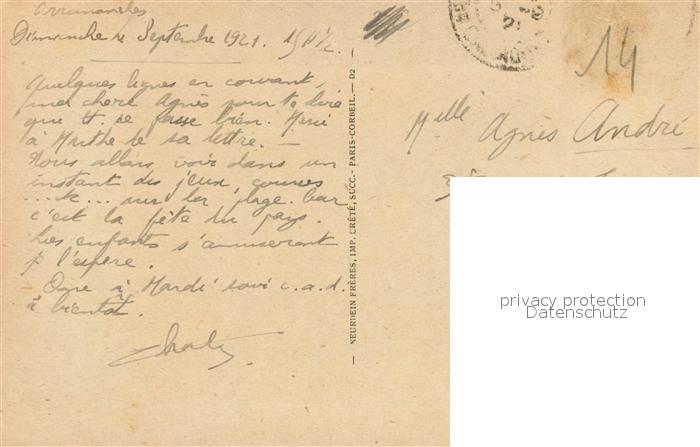 Arromanches
Dimanche 4 Septembre 1921. 15h 1/2.
Quelques lignes en courant,
ma chère Agnès pour te dire
que tt. se passe bien. Merci
à Marthe de sa lettre. —
Nous allons voir dans un
instant des jeux, courses
... sur la plage car
c'est la fête du pays.
Les enfants s'amuseront
j' l'espère.
à Mardi soir c.a.d.
à bientôt.
14
Melle Agnès André
— NEURDEIN FRÈRES, IMP. CRÉTÉ, SUCC. - PARIS-CORBEIL. — D2
privacy protection
Datenschutz